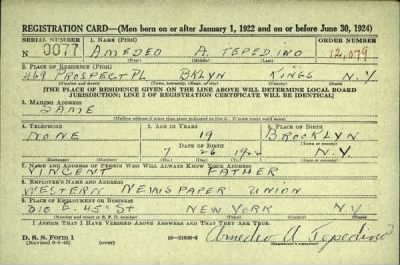 REGISTRATION CARD—(Men born on or after January 1, 1922 and on or before June 30, 1924)
SERIAL NUMBER 1. NAME (Print) ORDER NUMBER
N 0077 AMEDEO A. TEPEDINO 12,079
(First) (Middle) (Last)
2. PLACE OF RESIDENCE (Print)
469 PROSPECT PL BKLYN KINGS N.Y.
(Number and street) (Town, township, village, or city) (County) (State)
[THE PLACE OF RESIDENCE GIVEN ON THE LINE ABOVE WILL DETERMINE LOCAL BOARD
JURISDICTION; LINE 2 OF REGISTRATION CERTIFICATE WILL BE IDENTICAL]
3. MAILING ADDRESS
SAME
[Mailing address if other than place indicated on line 2. If same insert word same]
4. TELEPHONE 5. AGE IN YEARS 6. PLACE OF BIRTH
NONE 19 BROOKLYN
DATE OF BIRTH (Town or county)
7 26 1922 N.Y.
(Exchange) (Number) (Mo.) (Day) (Yr.) (State or country)
7. NAME AND ADDRESS OF PERSON WHO WILL ALWAYS KNOW YOUR ADDRESS
VINCENT FATHER
8. EMPLOYER'S NAME AND ADDRESS
WESTERN NEWSPAPER UNION
9. PLACE OF EMPLOYMENT OR BUSINESS
310 E. 45 ST NEW YORK N.Y
(Number and street or R. F. D. number) (Town) (County) (State)
I AFFIRM THAT I HAVE VERIFIED ABOVE ANSWERS AND THAT THEY ARE TRUE.
D. S. S. Form 1
(over) Amedeo A Tepedino